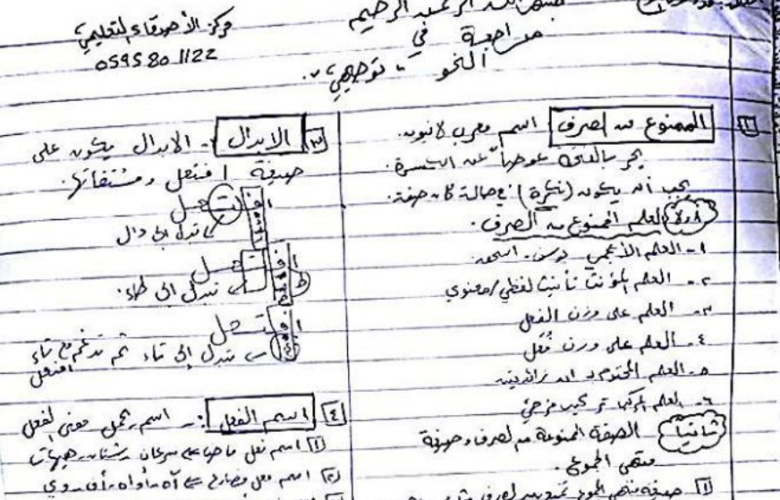 بسم الله الرحمن الرحيم
مراجعة في
النحو "توجيهي"
مركز الأصدقاء التعليمي
0595801122
١ الممنوع من الصرف اسم معرب لا ينون.
يجر بالفتحة عوضاً عن الكسرة.
يجب أن يكون (نكرة) في حالة كان صفة.
أولاً العلم الممنوع من الصرف.
١- العلم الأعجمي
٢- العلم المؤنث تأنيث لفظي/معنوي
٣- العلم على وزن الفعل
٤- العلم على وزن فُعَل
٥- العلم المختوم بـ ان زائدتين
٦- العلم المركب تركيب مزجي
ثانياً الصفة الممنوعة من الصرف وصيغة
منتهى الجموع.
٣ الإبدال - الابدال يكون على
صيغة افتعل ومشتقاتها.
تبدل إلى دال
تبدل إلى طاء.
تبدل إلى تاء ثم تدغم مع تاء
افتعل
٤ اسم الفعل - اسم يحمل معنى الفعل
١) اسم فعل ماضٍ سرعان - شتان - هيهات
٢) اسم فعل مضارع آه - أواه - أف - وي